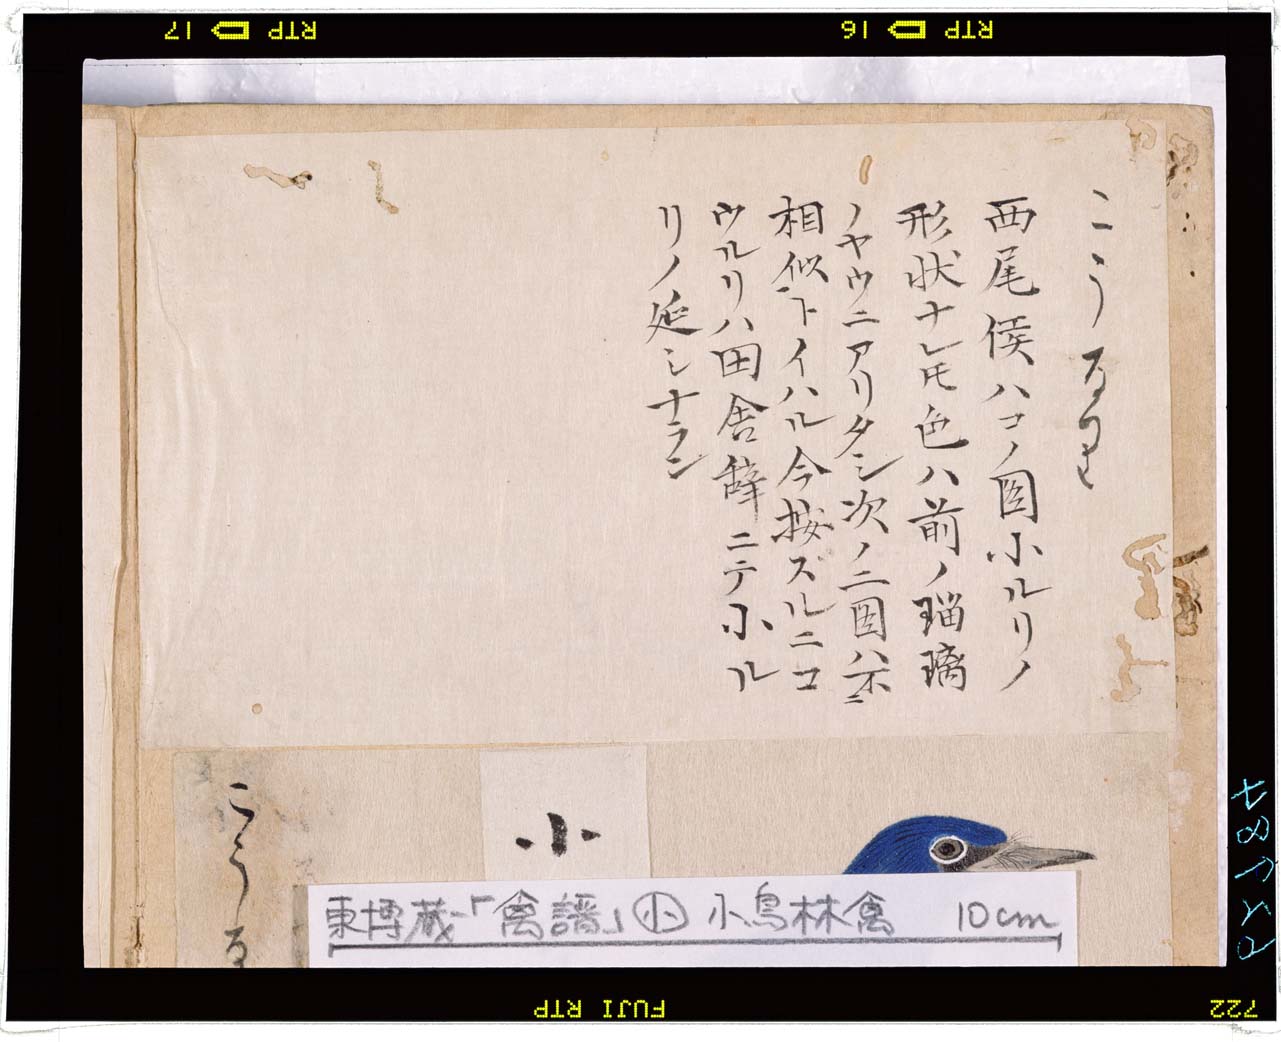 こうるり
西尾侯ハコノ圖小ルリノ
形状ナレ𪜈色ハ前ノ瑠璃
ノヤウニアリタシ次ノ二圖ハ不ニ
相似ートイハル今按ズルニコ
ウルリハ田舎辞ニテ小ル
リノ延シナラン
こうる
小
東博蔵-「禽譜」㊥小鳥林禽 10cm
RTP 17
RTP 16
FUJI RTP
722